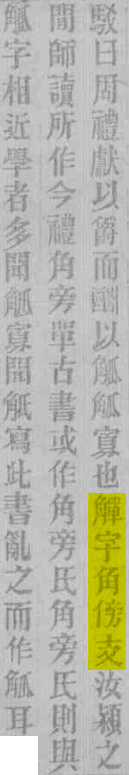 駁曰周禮獻以爵而酬以觚觚寡也觶字角傍支汝潁之
間師讀所作今禮角旁單古書或作角旁氏角旁氏則與
觚字相近學者多聞觚寡聞觗寫此書亂之而作觚耳